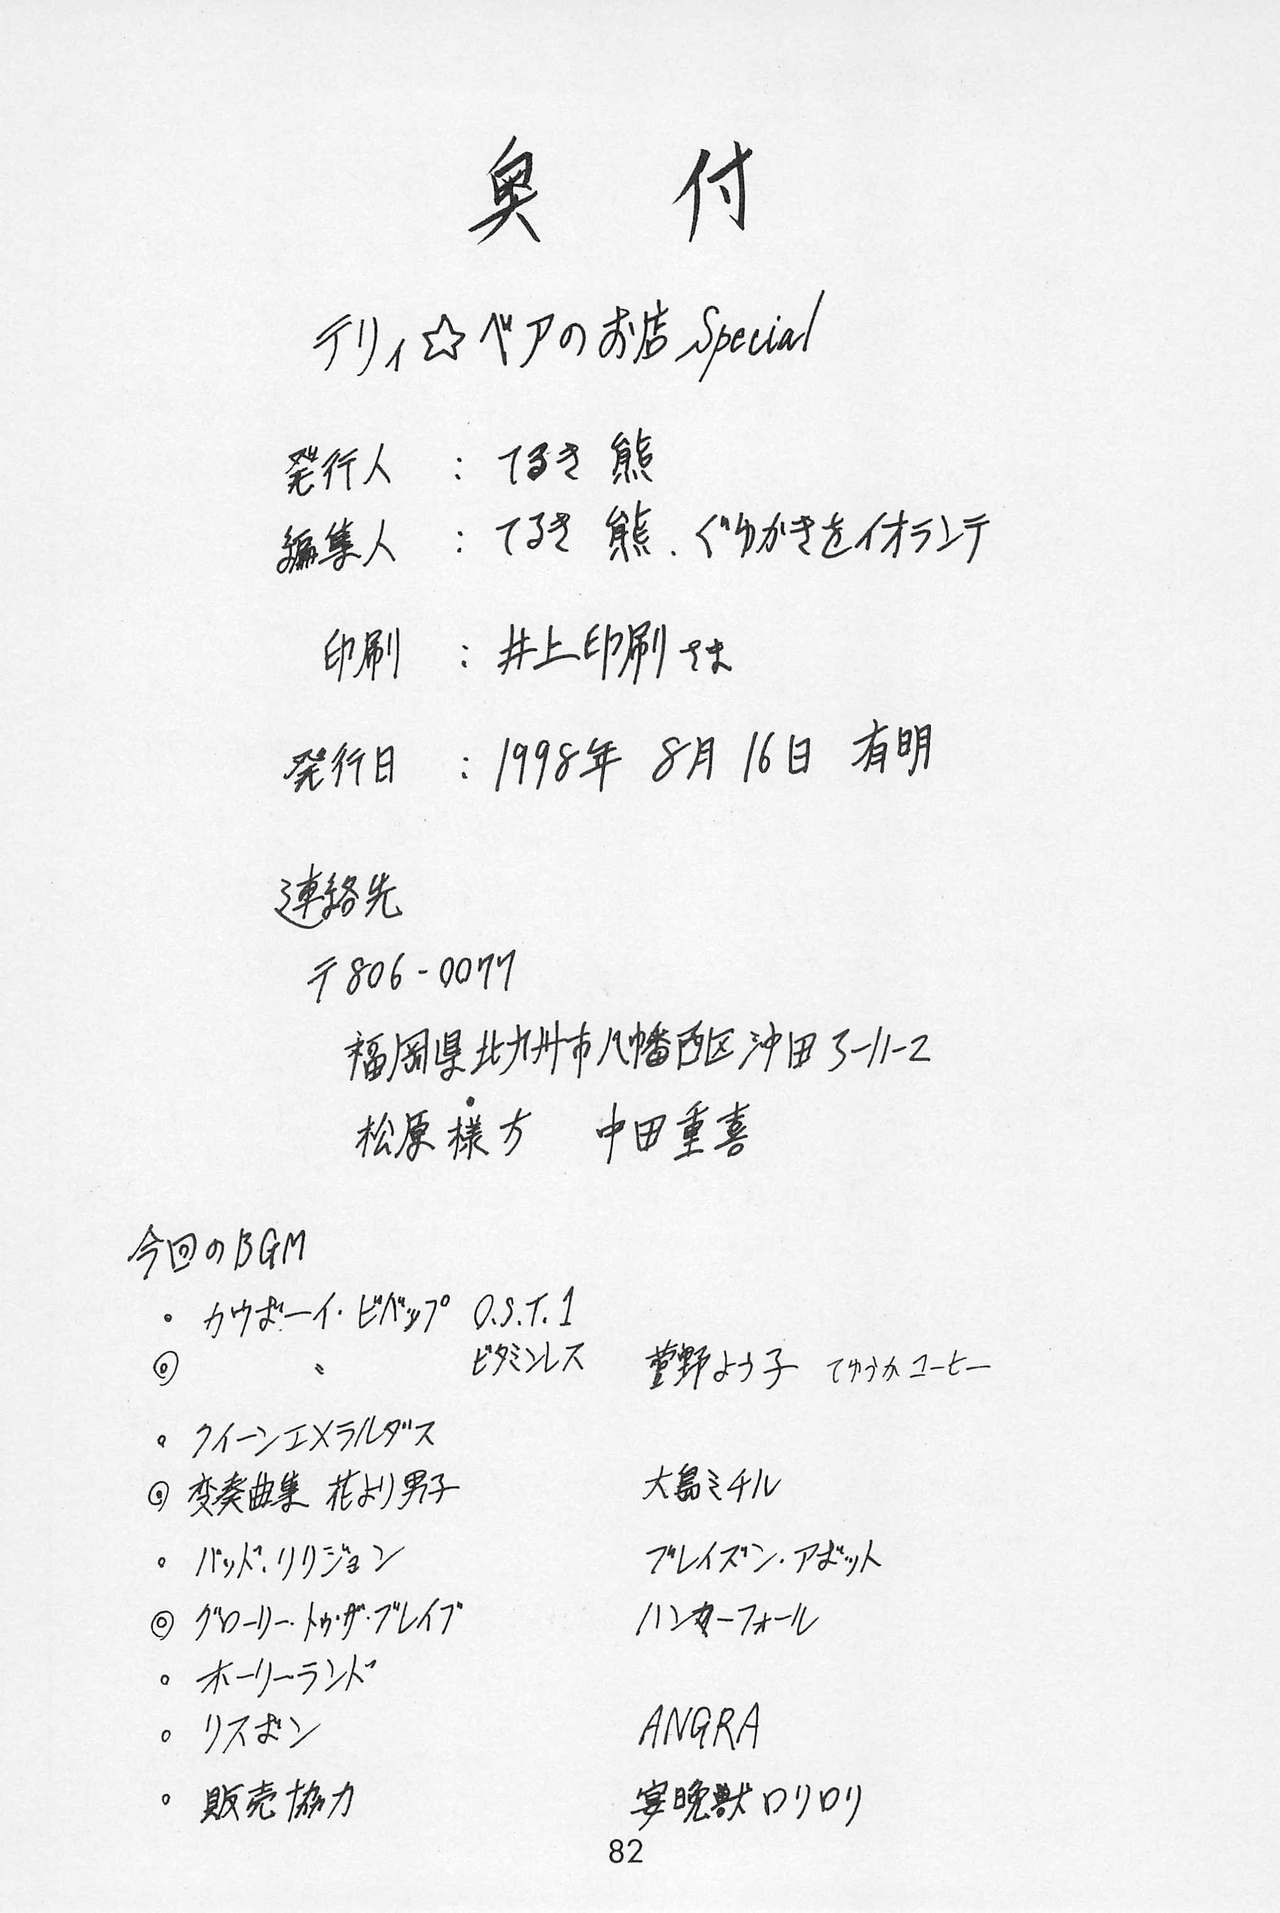 奥付
テリィ☆ベアのお店 Special
発行人 : てるき熊
編集人 : てるき熊、ぐゆかきをイオランテ
印刷 : 井上印刷さま
発行日 : 1998年 8月 16日 有明
連絡先
〒806-0077
福岡県北九州市八幡西区沖田3-11-2
松原様方 中田重喜
今回のBGM
・カウボーイ・ビバップ O.S.T.1
◎ 〃 ビタミンレス 菅野よう子 てゆうかコーヒー
・クイーンエメラルダス
◎ 変奏曲集 花より男子 大島ミチル
・バッド・リリジョン ブレイズン・アボット
◎ グローリー・トゥ・ザ・ブレイブ ハンマーフォール
・ホーリーランド
・リスボン ANGRA
・販売協力 宴晩獣ロリロリ
82